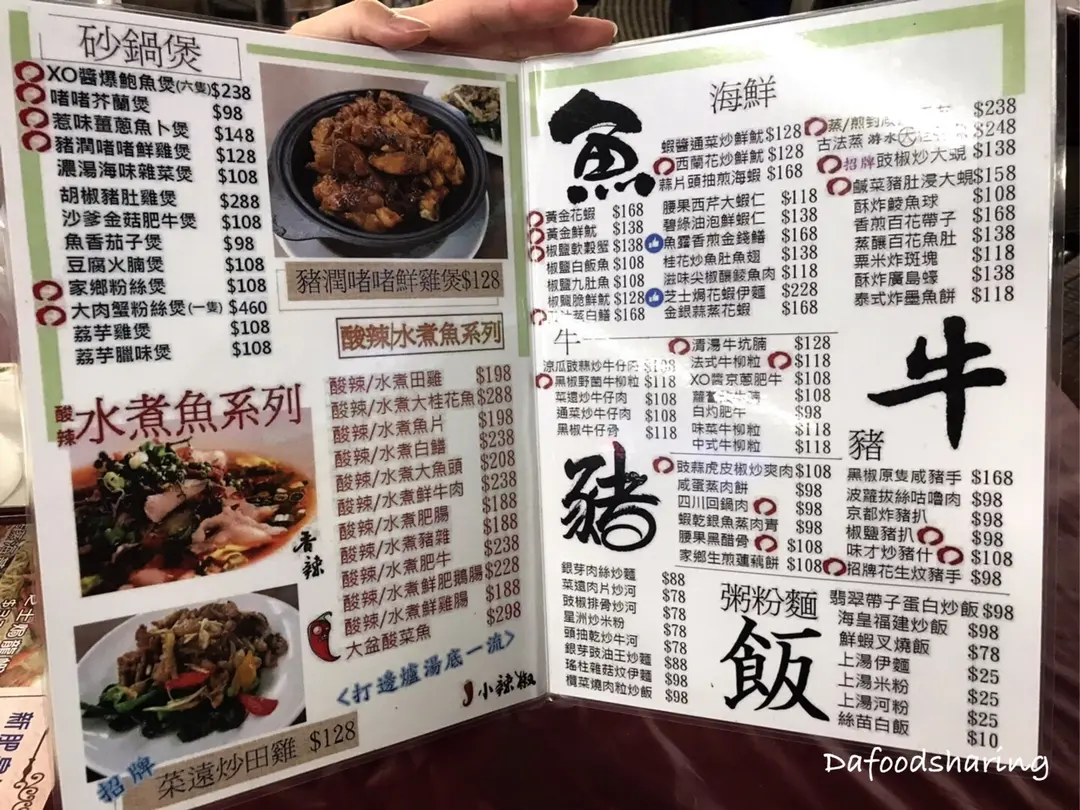 砂鍋煲
XO醬爆鮑魚煲(六隻)$238
啫啫芥蘭煲 $98
惹味薑蔥魚卜煲 $148
豬潤啫啫鮮雞煲 $128
濃湯海味雜菜煲 $108
胡椒豬肚雞煲 $288
沙爹金菇肥牛煲 $108
魚香茄子煲 $98
豆腐火腩煲 $108
家鄉粉絲煲 $108
大肉蟹粉絲煲(一隻) $460
荔芋雞煲 $108
荔芋臘味煲 $108
豬潤啫啫鮮雞煲$128
酸辣/水煮魚系列
酸辣
水煮魚系列
香辣
酸辣/水煮田雞 $198
酸辣/水煮大桂花魚 $288
酸辣/水煮魚片 $198
酸辣/水煮白鱔 $238
酸辣/水煮大魚頭 $208
酸辣/水煮鮮牛肉 $238
酸辣/水煮肥腸 $188
酸辣/水煮豬雜 $188
酸辣/水煮肥牛 $238
酸辣/水煮鮮肥鵝腸 $228
酸辣/水煮鮮雞腸 $188
大盆酸菜魚 $298
<打邊爐湯底一流>
小辣椒
招牌
菜遠炒田雞 $128
海鮮
魚
黃金花蝦 $168
黃金鮮魷 $138
椒鹽軟殼蟹 $138
椒鹽白飯魚 $108
椒鹽九肚魚 $108
椒鹽脆鮮魷 $128
蒸白鱔 $168
蝦醬通菜炒鮮魷 $128
西蘭花炒鮮魷 $128
蒜片頭抽煎海蝦 $168
腰果西芹大蝦仁 $118
碧綠油泡鮮蝦仁 $138
魚露香煎金錢鱔 $168
桂花炒魚肚魚翅 $138
滋味尖椒釀鯪魚肉 $118
芝士焗花蝦伊麵 $228
金銀蒜蒸花蝦 $168
蒸/煎 $238
古法蒸 游水大 $248
招牌豉椒炒大蜆 $138
鹹菜豬肚浸大蜆 $158
酥炸鯪魚球 $108
香煎百花帶子 $168
蒸釀百花魚肚 $138
粟米炸斑塊 $118
酥炸廣島蠔 $138
泰式炸墨魚餅 $118
牛
涼瓜豉蒜炒牛仔肉 $108
黑椒野菌牛柳粒 $118
菜遠炒牛仔肉 $108
通菜炒牛仔肉 $108
黑椒牛仔骨 $118
清湯牛坑腩 $128
法式牛柳粒 $118
XO醬京蔥肥牛 $108
蘿蔔 $108
白灼肥牛 $98
味菜牛柳粒 $118
中式牛柳粒 $118
牛
豬
豬
豉蒜虎皮椒炒爽肉 $108
咸蛋蒸肉餅 $98
四川回鍋肉 $98
蝦乾銀魚蒸肉青 $98
腰果黑醋骨 $108
家鄉生煎蓮藕餅 $108
黑椒原隻咸豬手 $168
波蘿拔絲咕嚕肉 $98
京都炸豬扒 $98
椒鹽豬扒 $98
味才炒豬什 $108
招牌花生炆豬手 $98
粥粉麵
飯
銀芽肉絲炒麵 $88
菜遠肉片炒河 $78
豉椒排骨炒河 $78
星洲炒米粉 $78
頭抽乾炒牛河 $78
銀芽豉油王炒麵 $88
瑤柱雜菇炆伊麵 $98
欖菜燒肉粒炒飯 $98
翡翠帶子蛋白炒飯 $98
海皇福建炒飯 $98
鮮蝦叉燒飯 $78
上湯伊麵 $25
上湯米粉 $25
上湯河粉 $25
絲苗白飯 $10
Dafoodsharing